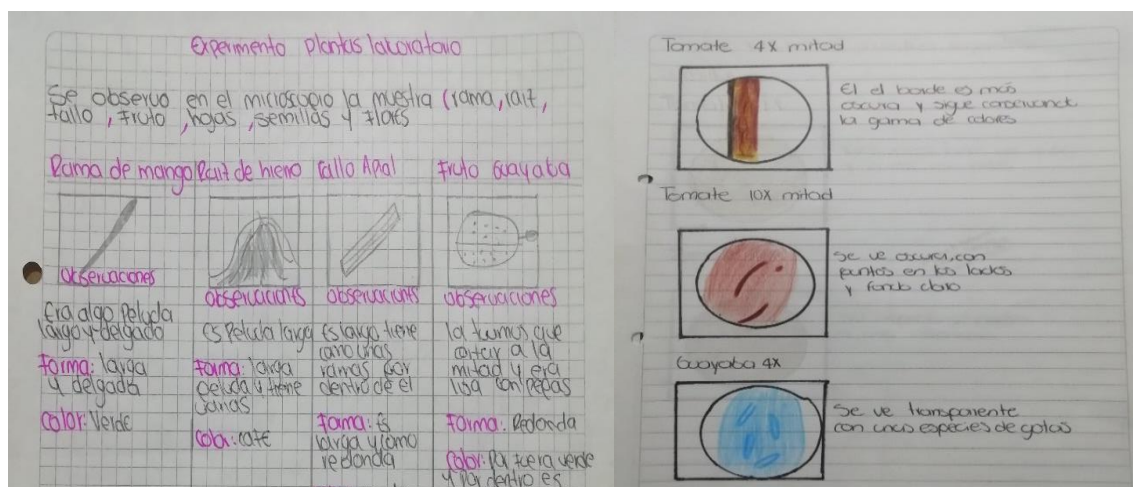 Experimento plantas laboratorio
Se observo en el microscopio la muestra (rama, rait,
tallo, fruto, hojas, semillas y flores
Rama de mango
observaciones
Era algo Peluda
larga y delgado
forma: larga
y delgada
Color: Verde
Rait de hieno
observaciones
Es Peluda larga
Forma: larga
peluda y tiene
varias
Color: café
tallo Apial
observaciones
Es largo tiene
como unas
ramas por
dentro de el
forma: Es
larga y como
redonda
Fruto Guayaba
observaciones
la tuvimos que
cortar a la
mitad y era
lisa con pepas
Forma: Redonda
Color: Por fuera verde
y por dentro es
Tomate 4x mitad
El el borde es más
oscura y sigue
la gama de colores
Tomate 10x mitad
Se ve oscura, con
puntos en los lados
y fondo claro
Guayaba 4x
Se ve transparente
con unas especies de gotas